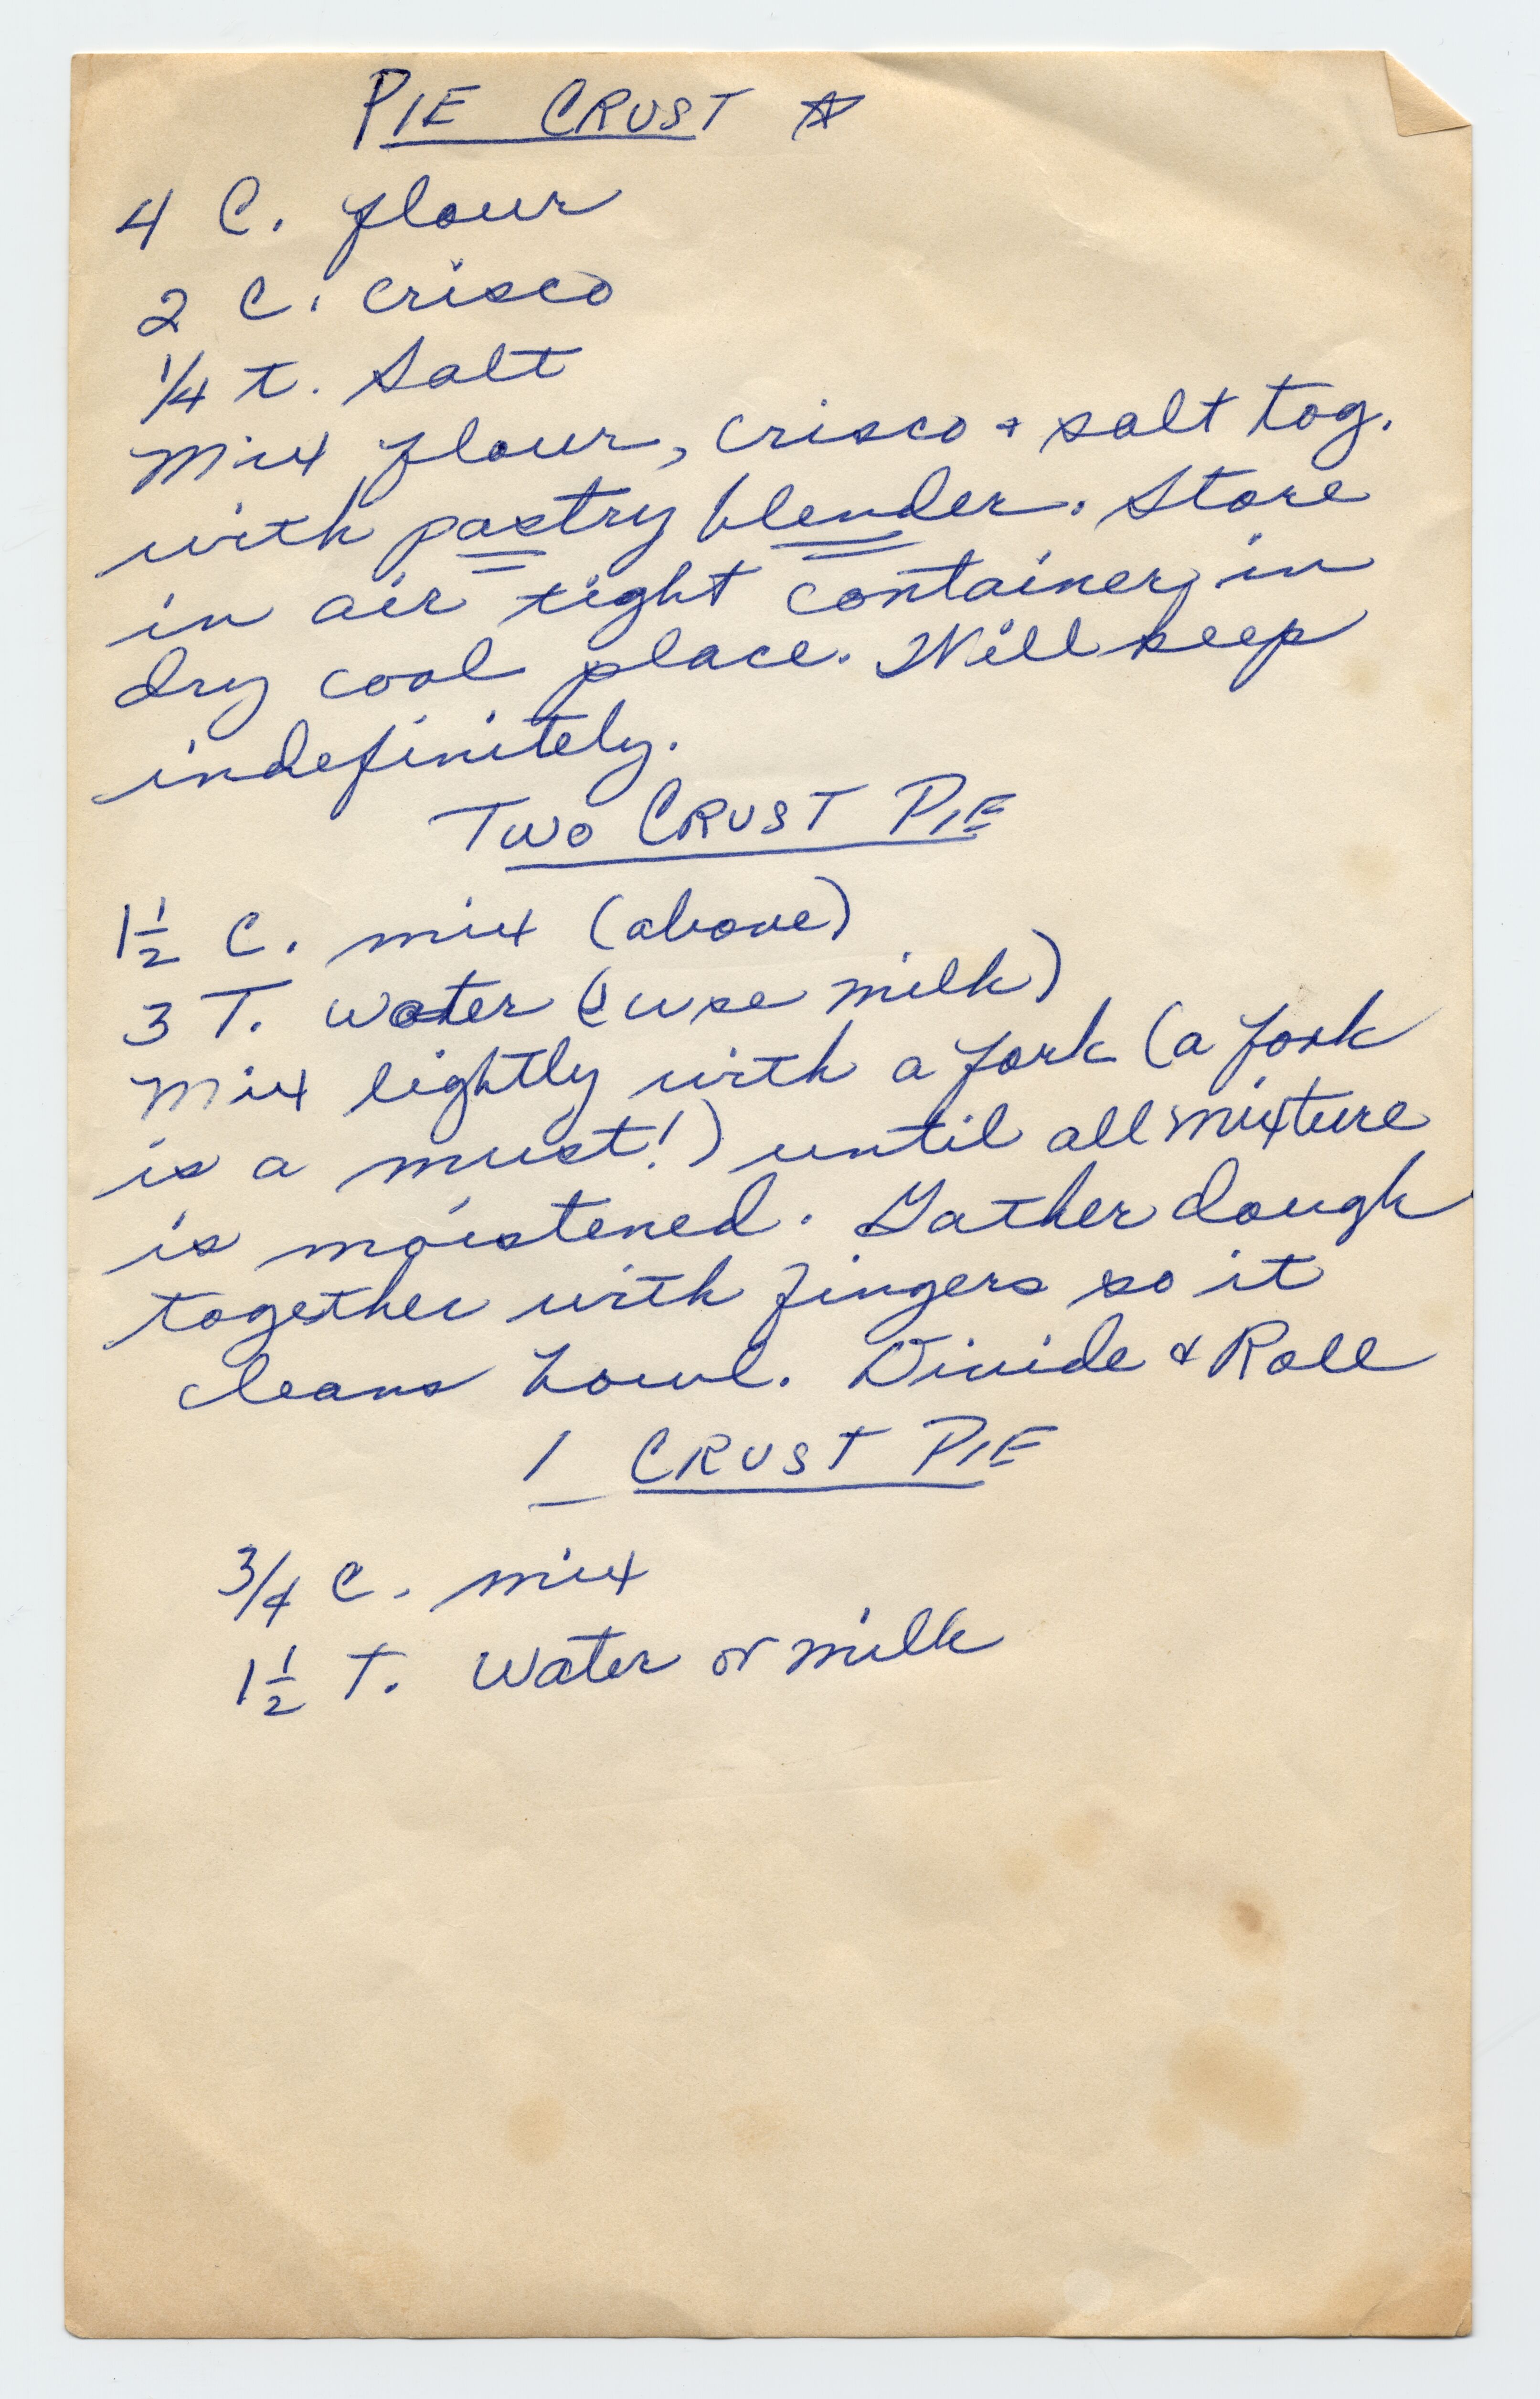 PIE CRUST ☆
4 C. flour
2 C. crisco
1/4 t. salt
Mix flour, crisco + salt tog.
with pastry blender. Store
in air tight container, in
dry cool place. Will keep
indefinitely.
TWO CRUST PIE
1 1/2 C. mix (above)
3 T. water (I use milk)
Mix lightly with a fork (a fork
is a must!) until all mixture
is moistened. Gather dough
together with fingers so it
cleans bowl. Divide & Roll
1 CRUST PIE
3/4 C. mix
1 1/2 T. Water or milk